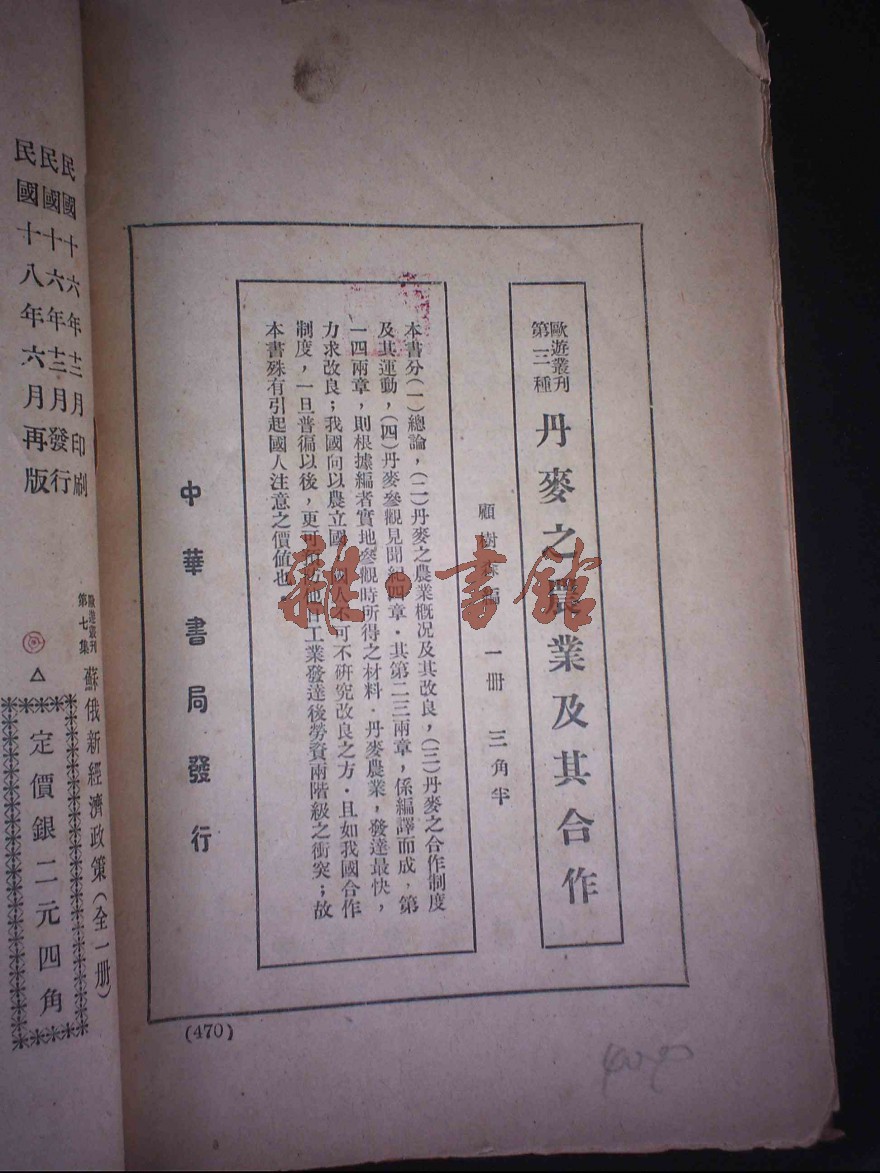 歐遊叢刊
第三種
丹麥之農業及其合作
顧樹森編 一册 三角半
本書分(一)總論,(二)丹麥之農業概況及其改良,(三)丹麥之合作制度
及其運動,(四)丹麥參觀見聞紀四章.其第二三兩章,係編譯而成,第
一四兩章,則根據編者實地參觀時所得之材料.丹麥農業,發達最快,
力求改良;我國向以農立國,國人不可不研究改良之方.且如我國合作
制度,一旦普徧以後,更可預防他日工業發達後勞資兩階級之衝突;故
本書殊有引起國人注意之價值也.
中華書局發行
(470)
民國十六年十二月印刷
民國十六年十二月發行
民國十八年六月再版
歐遊叢刊
第七集
蘇俄新經濟政策(全一册)
定價銀二元四角
雜·書館